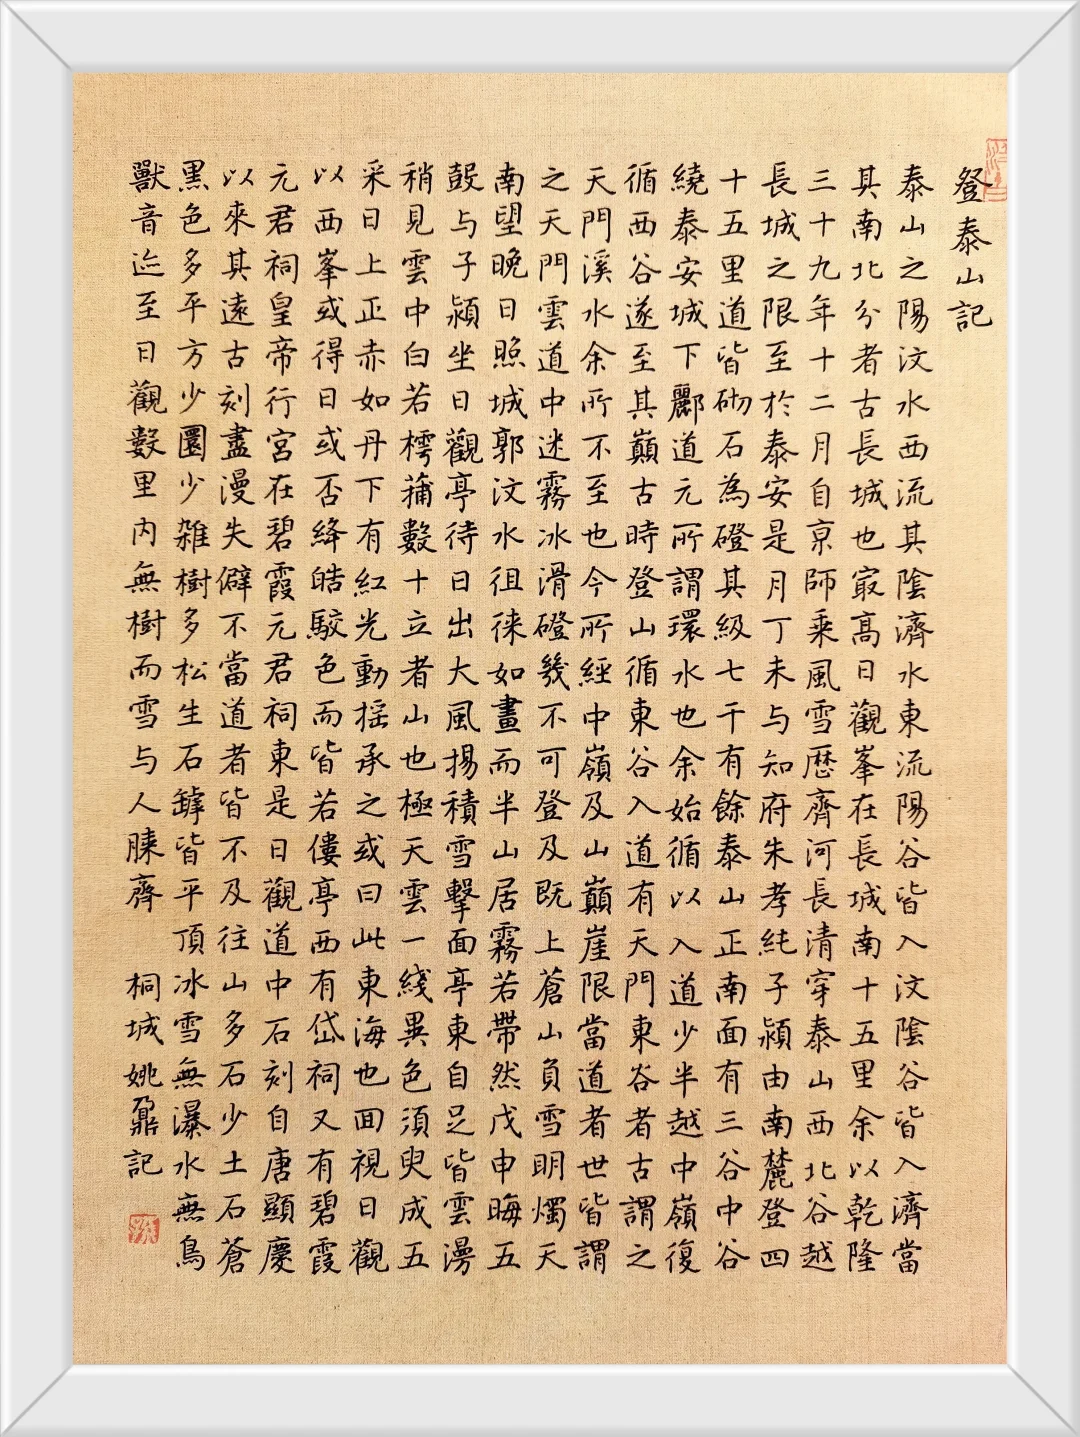 登泰山記
泰山之陽汶水西流其陰濟水東流陽谷皆入汶陰谷皆入濟當
其南北分者古長城也冣高日觀峯在長城南十五里余以乾隆
三十九年十二月自京師乘風雪歷齊河長清穿泰山西北谷越
長城之限至於泰安是月丁未与知府朱孝純子潁由南麓登四
十五里道皆砌石為磴其級七千有餘泰山正南面有三谷中谷
繞泰安城下酈道元所謂環水也余始循以入道少半越中嶺復
循西谷遂至其巔古時登山循東谷入道有天門東谷者古謂之
天門溪水余所不至也今所經中嶺及山巔崖限當道者世皆謂
之天門雲道中迷霧冰滑磴幾不可登及既上蒼山負雪明燭天
南望晚日照城郭汶水徂徠如畫而半山居霧若帶然戊申晦五
鼓与子潁坐日觀亭待日出大風揚積雪擊面亭東自足皆雲漫
稍見雲中白若樗蒱數十立者山也極天雲一綫異色須臾成五
采日上正赤如丹下有紅光動搖承之或曰此東海也囬視日觀
以西峯或得日或否絳皓駁色而皆若僂亭西有岱祠又有碧霞
元君祠皇帝行宮在碧霞元君祠東是日觀道中石刻自唐顯慶
以來其遠古刻盡漫失僻不當道者皆不及往山多石少土石蒼
黑色多平方少圜少雜樹多松生石罅皆平頂冰雪無瀑水無鳥
獸音迹至日觀數里内無樹而雪与人膝齊 桐城姚鼐記